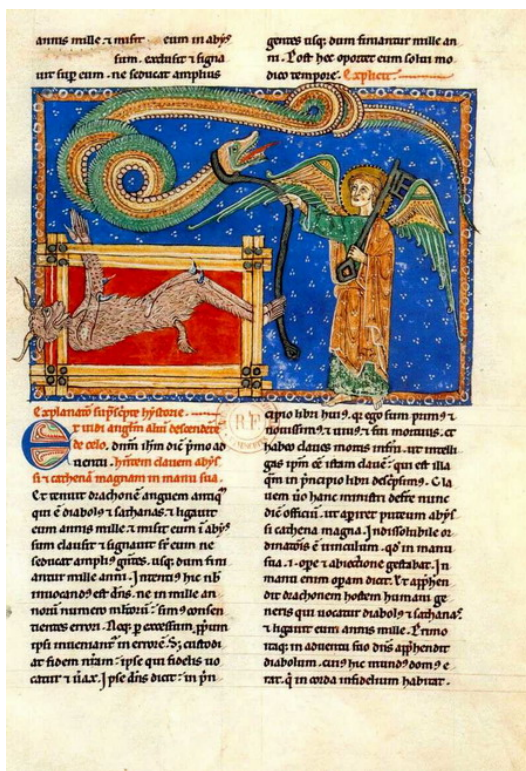 annis mille. ⁊ misit eum in abyſ
sum. exclusit ⁊ signa
uit sup eum. ne seducat amplius
gentes usq; dum finiantur mille an
ni. Post hec oportet eum solui mo
dico tempore. Explicit.
Explanatio supscripte hystorie.
Ex uidi anglm alium descendete
de celo. dnm ihm dic pmo ad
uentu. hntem clauem abyſ
si ⁊ cathenā magnam in manu sua.
Et tenuit drachonē anguem antiq
qui ē diabolꝰ ⁊ sathanas. ⁊ ligauit
eum annis mille. ⁊ misit eum ī abyſ
sum clausit ⁊ signauit sr eum ne
seducat amplius gntes. usq; dum fini
antur mille anni.
norū numero
tientes errori. per excessum
ipsi inueniant in errore.
at fidem nram: ipse qui fidelis uo
catur ⁊ uax. Ipse dns dicit: in pn
cipio libri huiꝰ. qr ego sum primꝰ ⁊
nouissimꝰ. ⁊ uiuꝰ ⁊ fui mortuus. et
habeo claues mortis inferni. ut intelli
gas ipm ee istam clauē: qui est illa
qm in pncipio libri descripsim. Cla
uem uo hanc ministri deferre nunc
dic officiū. ut apiret puteum abyſ
si cathena magna. Indissolubile or
dinatois ē uinculum. qd in manu
sua. i. ope ⁊ gestabat. In
manu enim opam dicit. Et appben
dit drachonem hostem humani ge
neris qui uocatur diabolꝰ ⁊ sathanas.
⁊ ligauit eum annis mille. Primo
itaq; in aduentu suo dns apphendit
diabolum. cuiꝰ hic mundꝰ domꝰ e
rat. q in corda infidelium habitat.
R.F.